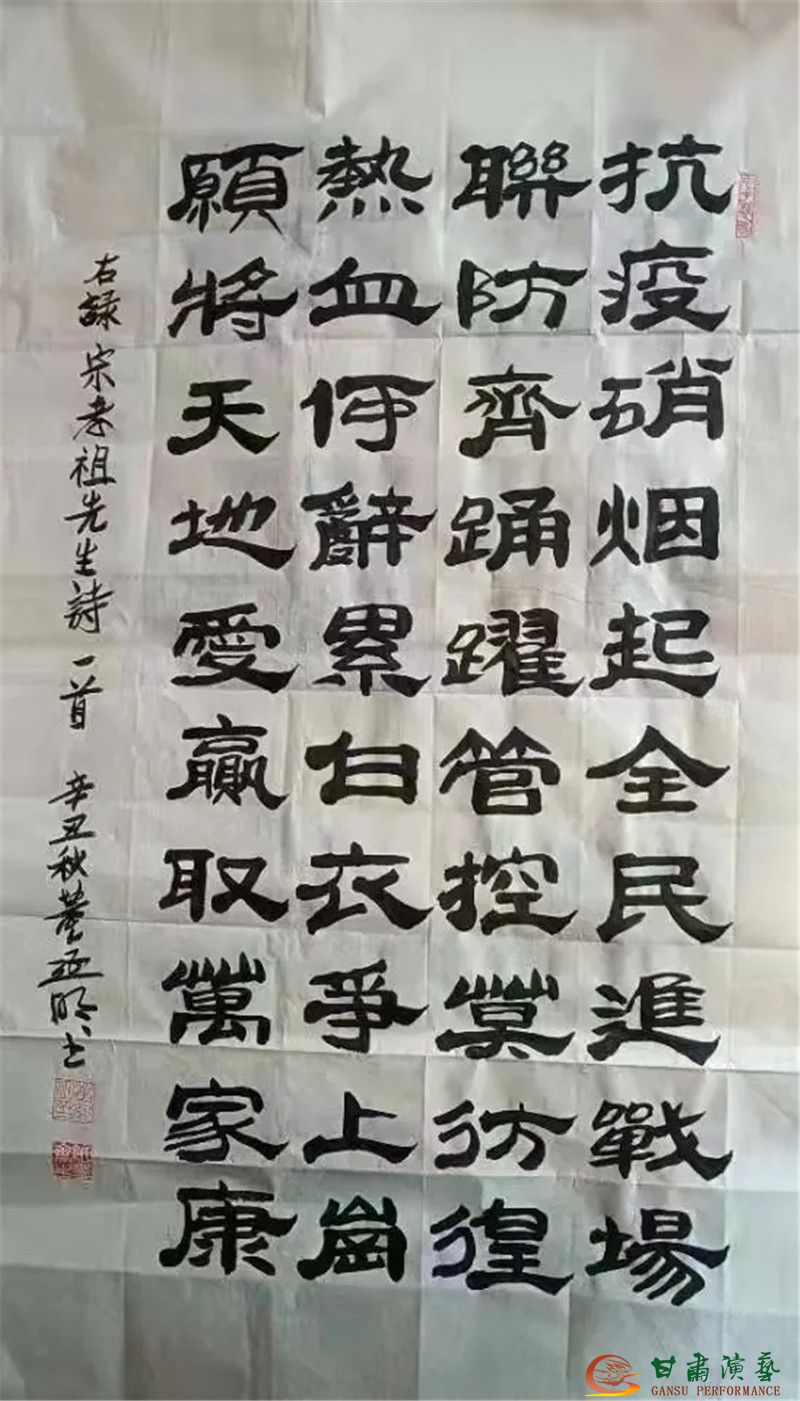 抗疫硝烟起全民進戰場
聯防齊踊躍管控莫彷徨
熱血何辭累白衣爭上崗
願將天地愛贏取萬家康
右録宗孝祖先生詩一首
辛丑秋董亚明書
甘肅演藝
GANSU PERFORMANCE